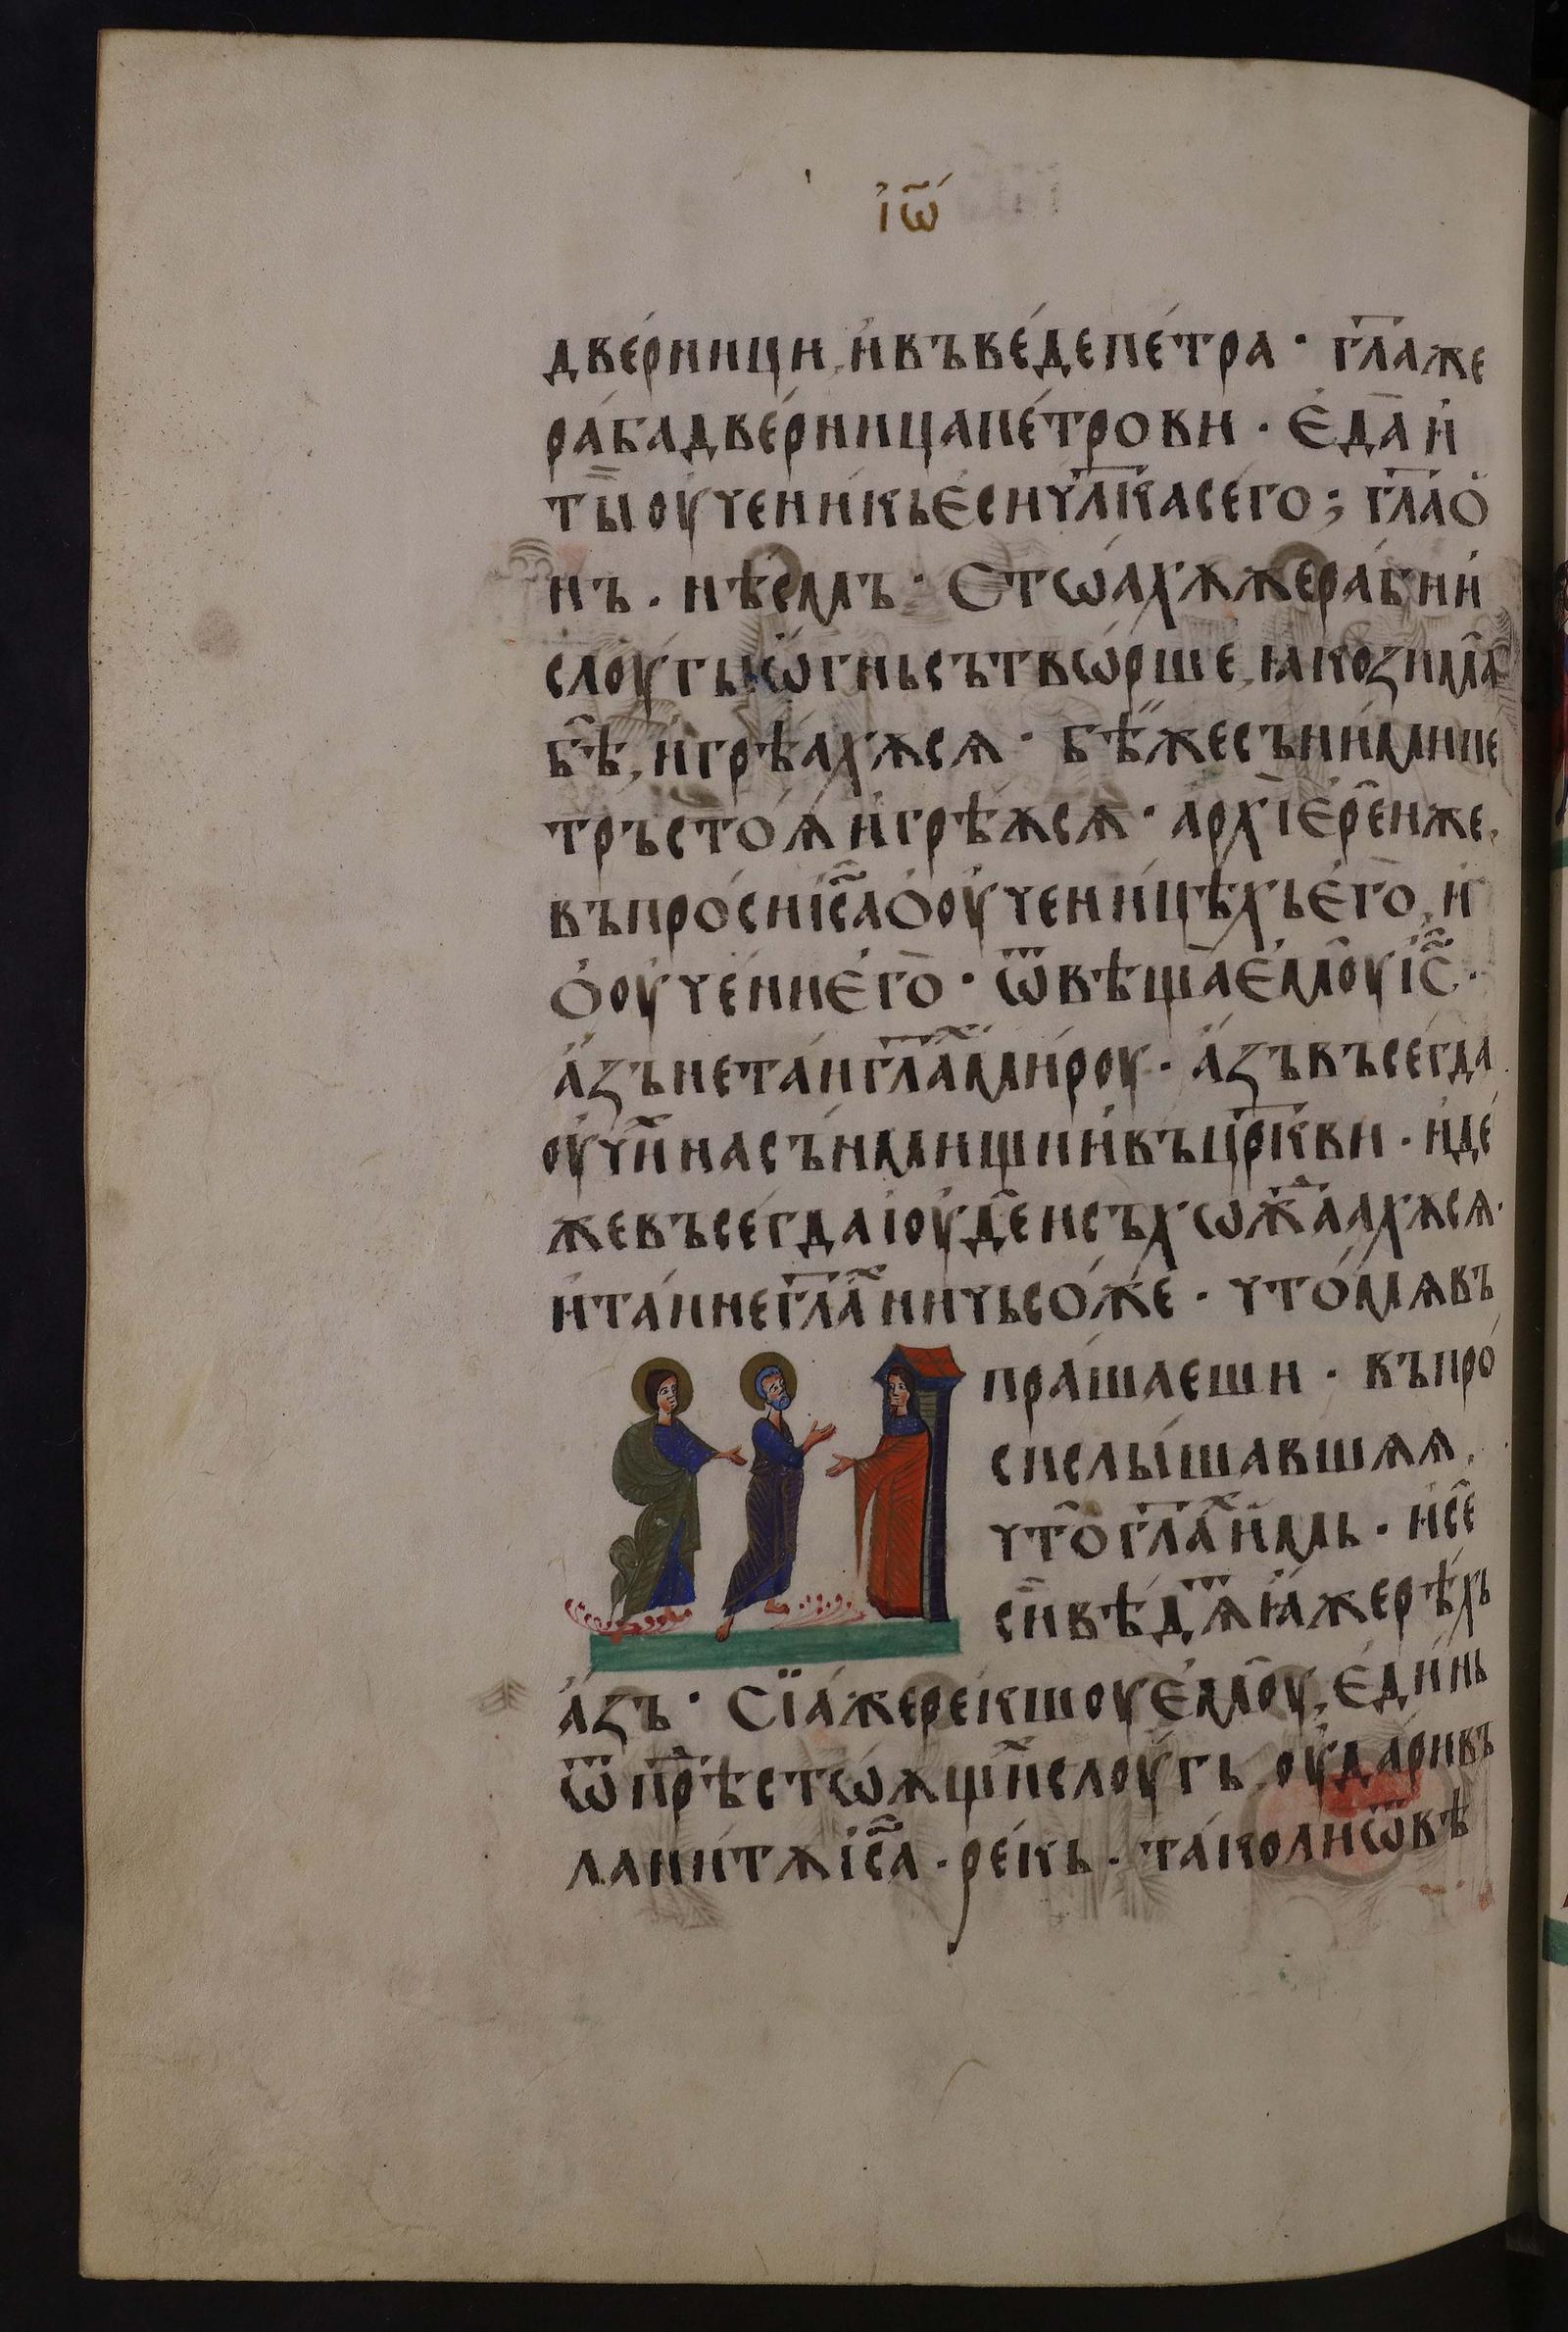 і҆ѡ҃
две́рници, и҆въве́де пе́тра · гл҃аже
ра́бадве́рницапе́трови · є҆да̀ и҆
ты̀ оу҆чени́кь є҆си чл҃ка сего ; гл҃а ѻ҆
нъ · нѣ́смъ · Стѡа́хѫже раби и҆
слоугы ѡ҆гнь сътвѡ́рше, ꙗко зима̀
бѣ̀, и҆ грѣ́ахѫсѧ · бѣ́же съни́ми пе
тръ сто́ѧ и҆ грѣ́ѫсѧ · а҆рхїє҆ре́иже,
въпро́си і҆с҃а ѻ҆ оу҆чени́цѣхь є҆го̀, и҆
ѻ҆ оу҆че́ни є҆го̀ · ѿвѣща̀ є҆моу̀ і҆с҃ ·
а҆́зъ не та́и гл҃а́х ми́роу · а҆́зъ въсегда
оу҆чи́х на съ́нмищи и҆ въ цр҃кви · и҆де́
же въсегда і҆оу҆де́и съхѡж҃а́ахѫсѧ ·
и҆ та́и не гл҃а́х ничьсо́же · что́ мѧ въ
пра́шаеши · въпро́
си слы́шавшѧѧ,
что̀ гл҃а́х и҆́мь · и҆ сѐ
сѝ вѣ́дѧт ꙗ҆́же рѣ́хь
а҆́зъ · Сїа́же рекшоу є҆моу̀, є҆ди́нь
ѿ прѣ́стѡѧщи́х слоугь, оу҆да́ривъ
лани́тѫ і҆с҃а · ре́кь · та́ко ли ѿвѣ